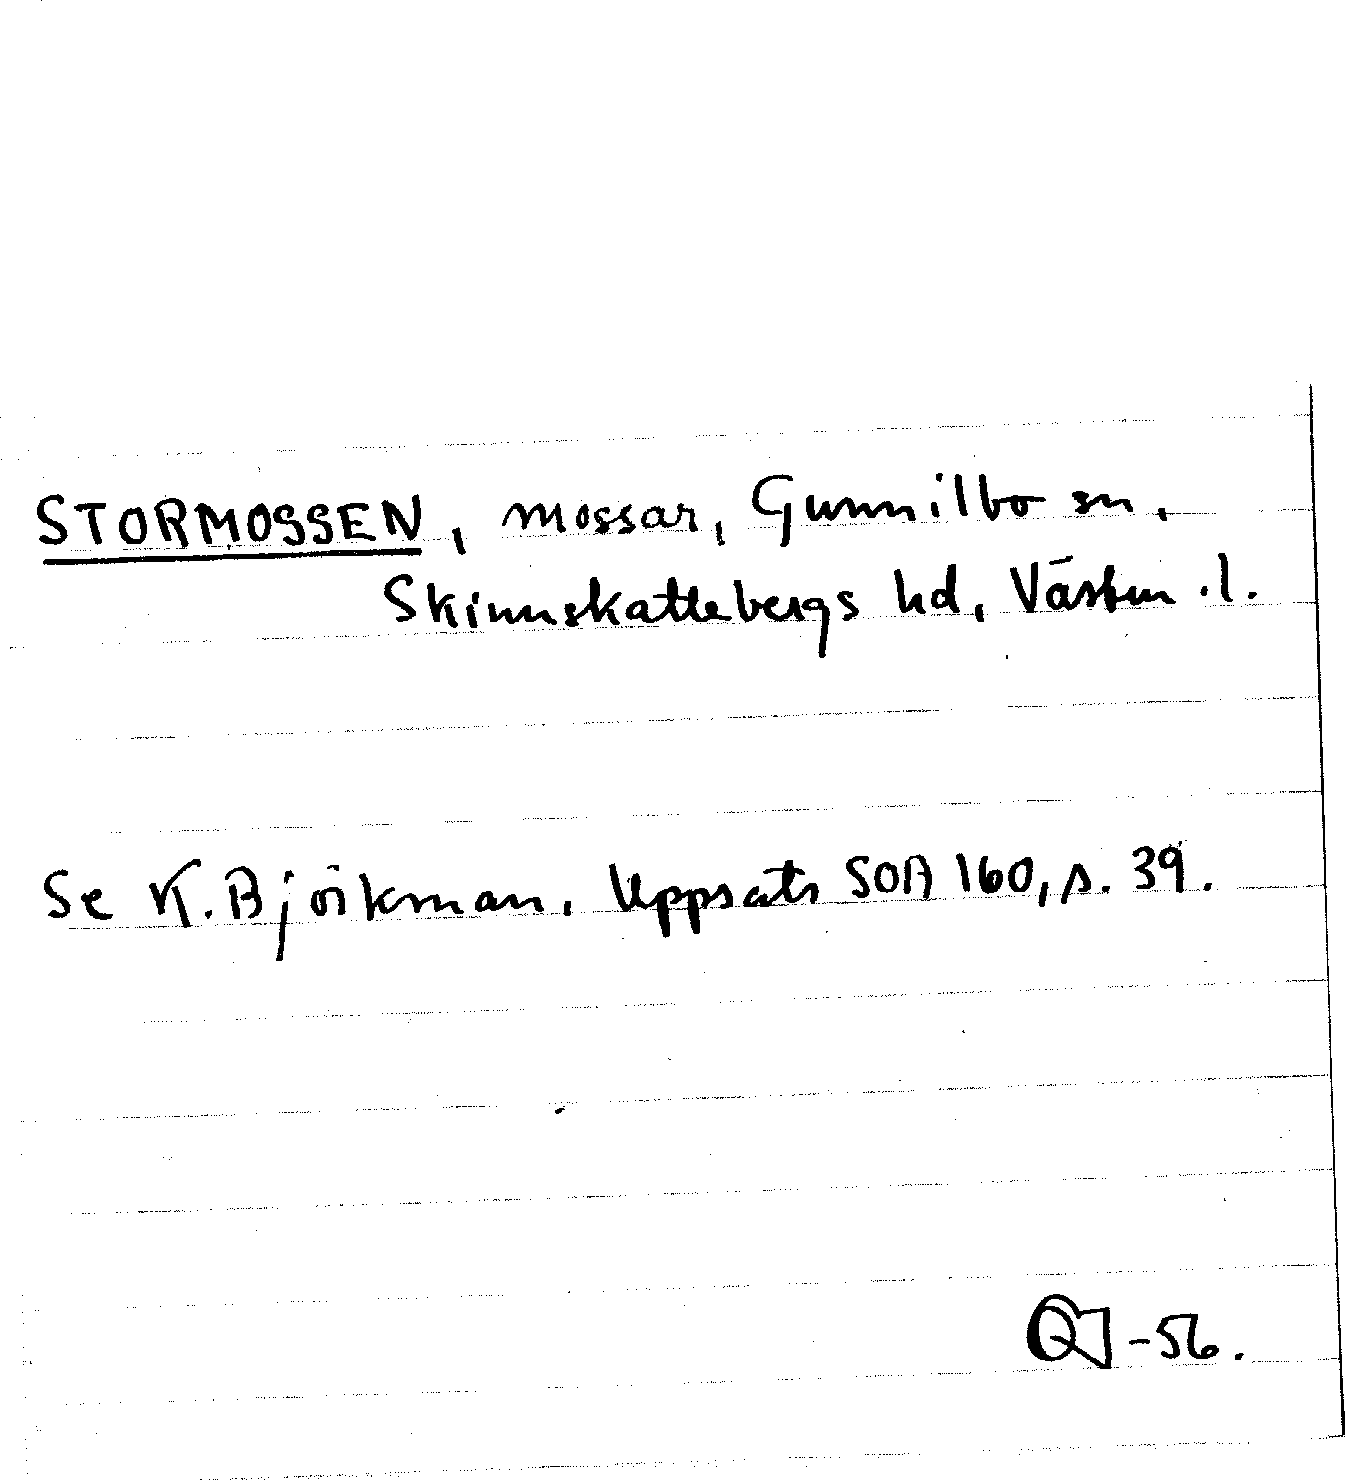 STORMOSSEN, mossar, Gunnilbo sn,
Skinnskattebergs hd, Västm.l.
Se K. Björkman, Uppsats SOA 160, s. 39.
-56.